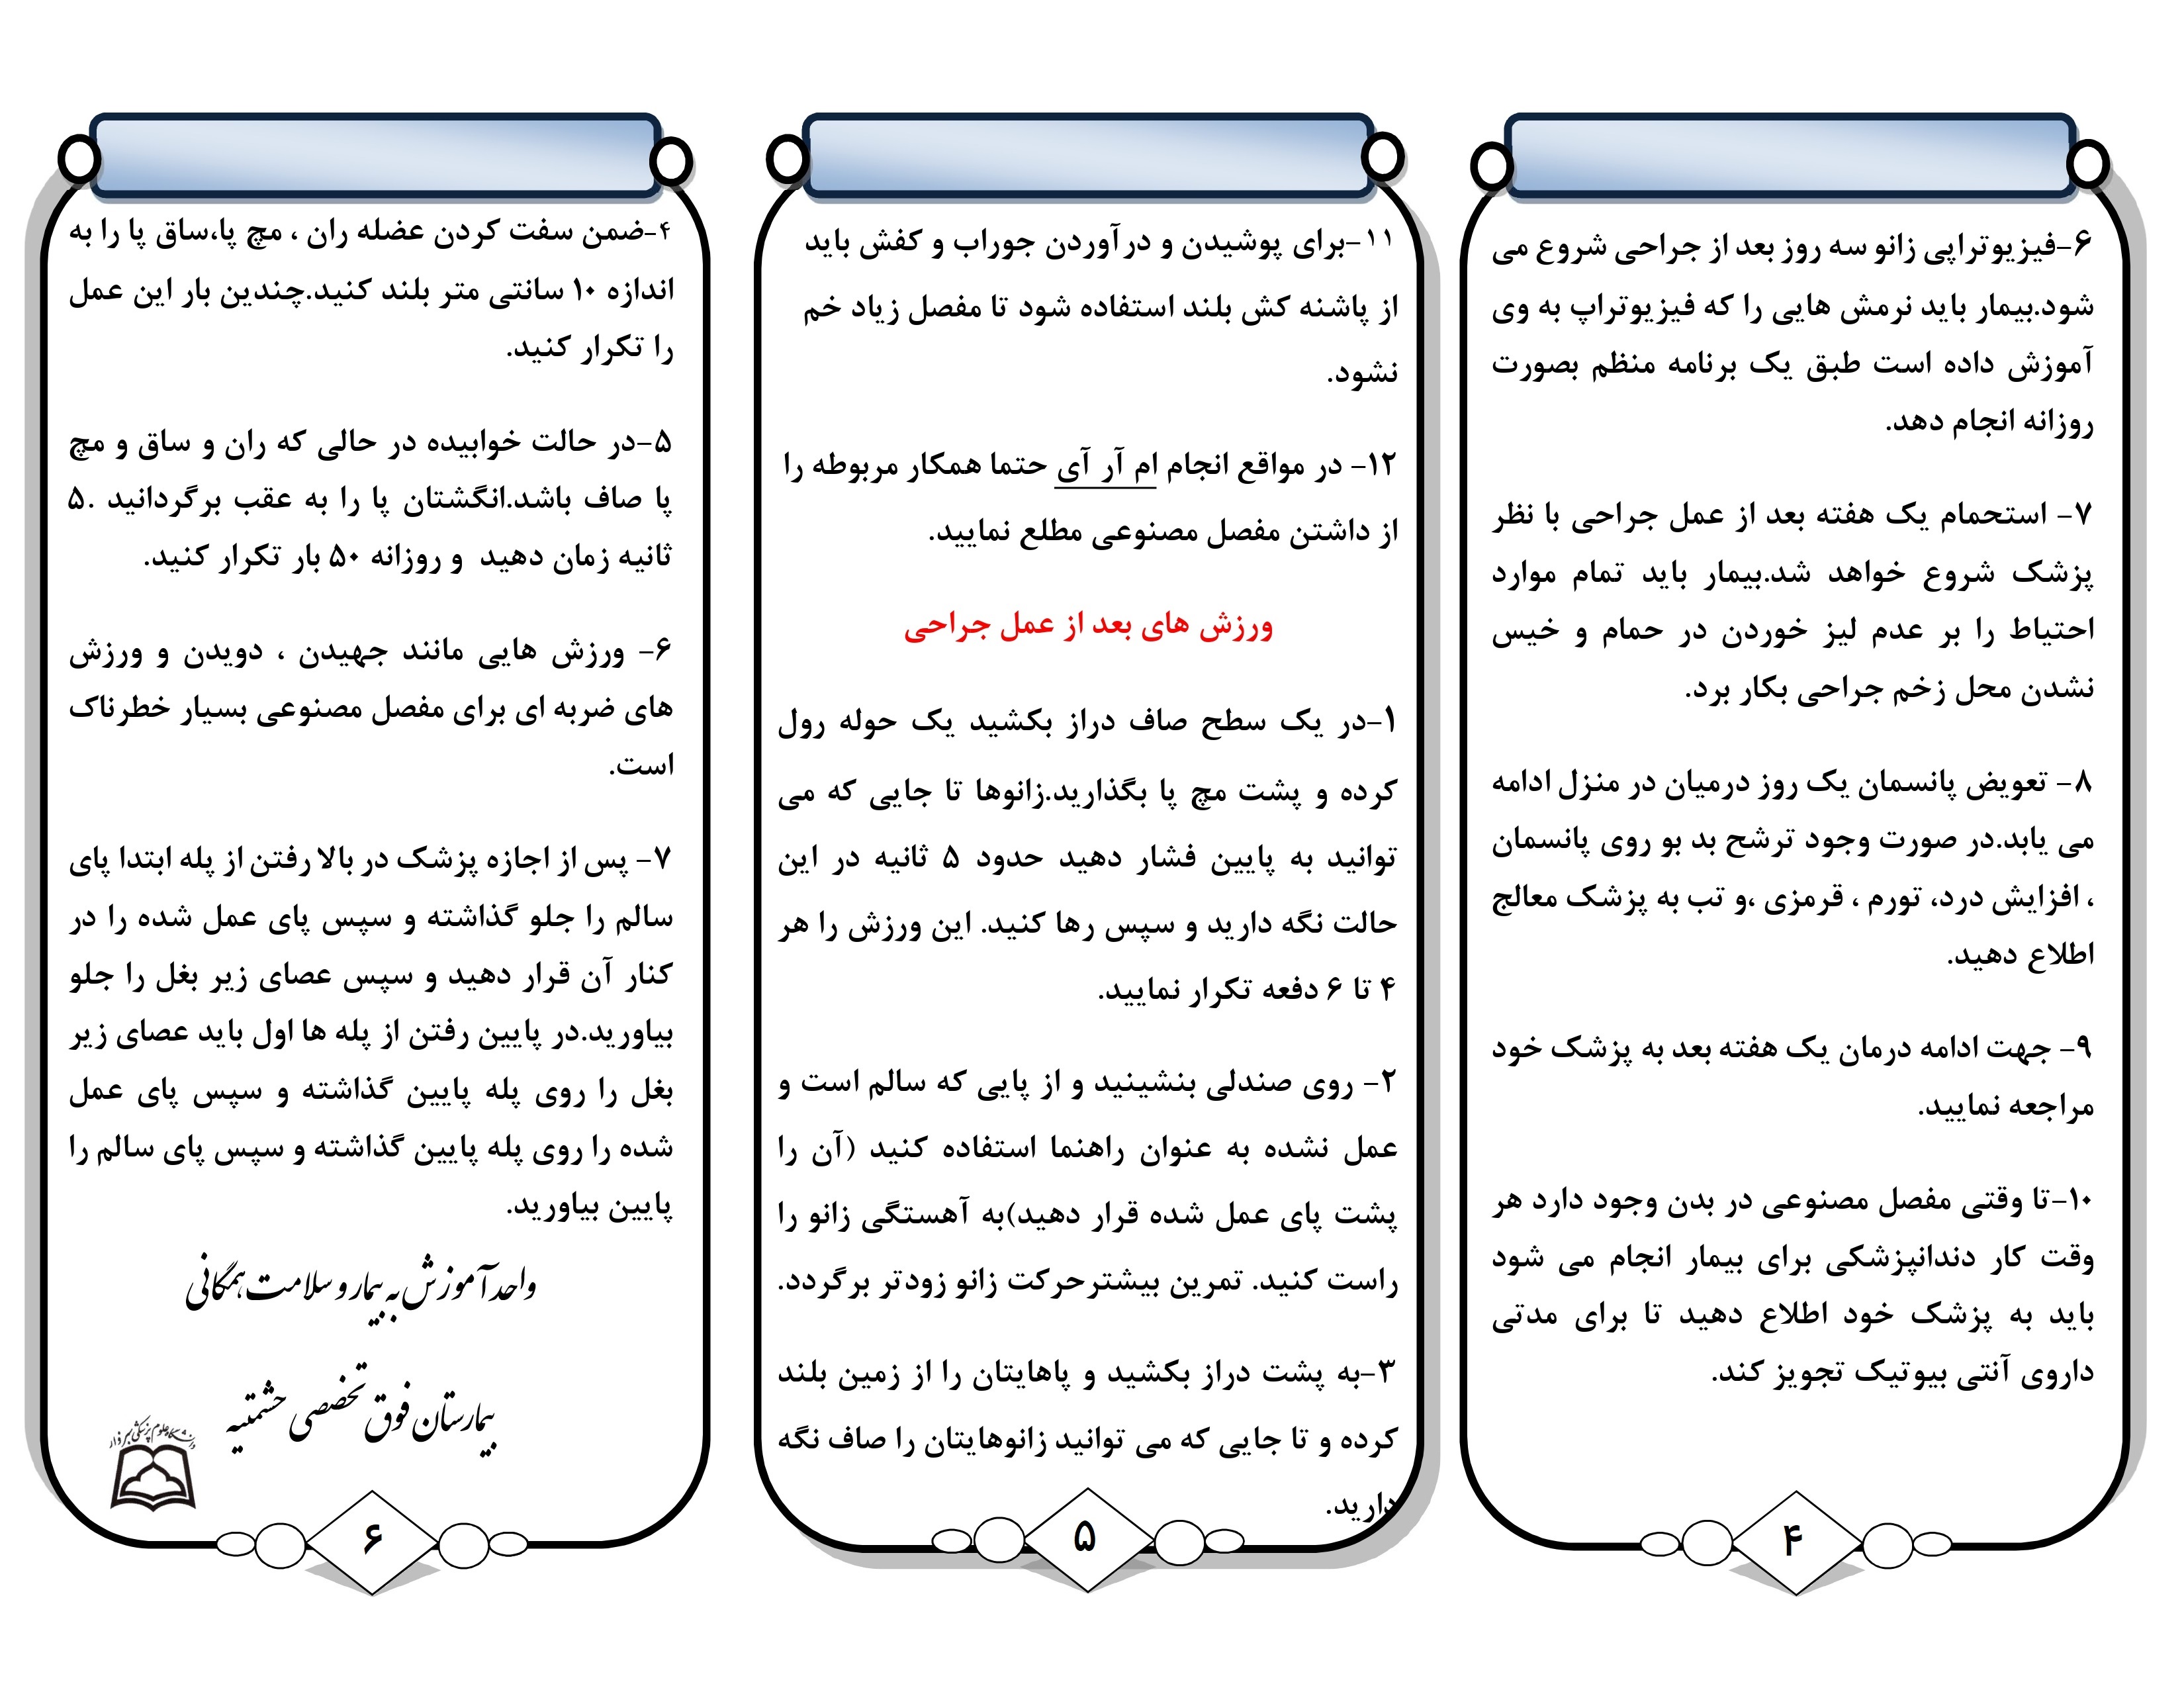 ۶-فیزیوتراپی زانو سه روز بعد از جراحی شروع می
شود.بیمار باید نرمش هایی را که فیزیوتراپ به وی
آموزش داده است طبق یک برنامه منظم بصورت
روزانه انجام دهد.
۷- استحمام یک هفته بعد از عمل جراحی با نظر
پزشک شروع خواهد شد.بیمار باید تمام موارد
احتیاط را بر عدم لیز خوردن در حمام و خیس
نشدن محل زخم جراحی بکار برد.
۸- تعویض پانسمان یک روز درمیان در منزل ادامه
می یابد.در صورت وجود ترشح بد بو روی پانسمان
، افزایش درد، تورم ، قرمزی ،و تب به پزشک معالج
اطلاع دهید.
۹- جهت ادامه درمان یک هفته بعد به پزشک خود
مراجعه نمایید.
۱۰-تا وقتی مفصل مصنوعی در بدن وجود دارد هر
وقت کار دندانپزشکی برای بیمار انجام می شود
باید به پزشک خود اطلاع دهید تا برای مدتی
داروی آنتی بیوتیک تجویز کند.
۴
۱۱-برای پوشیدن و درآوردن جوراب و کفش باید
از پاشنه کش بلند استفاده شود تا مفصل زیاد خم
نشود.
۱۲- در مواقع انجام ام آر آی حتما همکار مربوطه را
از داشتن مفصل مصنوعی مطلع نمایید.
ورزش های بعد از عمل جراحی
۱-در یک سطح صاف دراز بکشید یک حوله رول
کرده و پشت مچ پا بگذارید.زانوها تا جایی که می
توانید به پایین فشار دهید حدود ۵ ثانیه در این
حالت نگه دارید و سپس رها کنید. این ورزش را هر
۴ تا ۶ دفعه تکرار نمایید.
۲- روی صندلی بنشینید و از پایی که سالم است و
عمل نشده به عنوان راهنما استفاده کنید (آن را
پشت پای عمل شده قرار دهید)به آهستگی زانو را
راست کنید. تمرین بیشترحرکت زانو زودتر برگردد.
۳-به پشت دراز بکشید و پاهایتان را از زمین بلند
کرده و تا جایی که می توانید زانوهایتان را صاف نگه
دارید.
۵
۴-ضمن سفت کردن عضله ران ، مچ پا،ساق پا را به
اندازه ۱۰ سانتی متر بلند کنید.چندین بار این عمل
را تکرار کنید.
۵-در حالت خوابیده در حالی که ران و ساق و مچ
پا صاف باشد.انگشتان پا را به عقب برگردانید .۵
ثانیه زمان دهید و روزانه ۵۰ بار تکرار کنید.
۶- ورزش هایی مانند جهیدن ، دویدن و ورزش
های ضربه ای برای مفصل مصنوعی بسیار خطرناک
است.
۷- پس از اجازه پزشک در بالا رفتن از پله ابتدا پای
سالم را جلو گذاشته و سپس پای عمل شده را در
کنار آن قرار دهید و سپس عصای زیر بغل را جلو
بیاورید.در پایین رفتن از پله ها اول باید عصای زیر
بغل را روی پله پایین گذاشته و سپس پای عمل
شده را روی پله پایین گذاشته و سپس پای سالم را
پایین بیاورید.
واحد آموزش به بیمار و سلامت همگانی
بیمارستان فوق تخصصی حشمتیه
دانشگاه علوم پزشکی سبزوار
۶